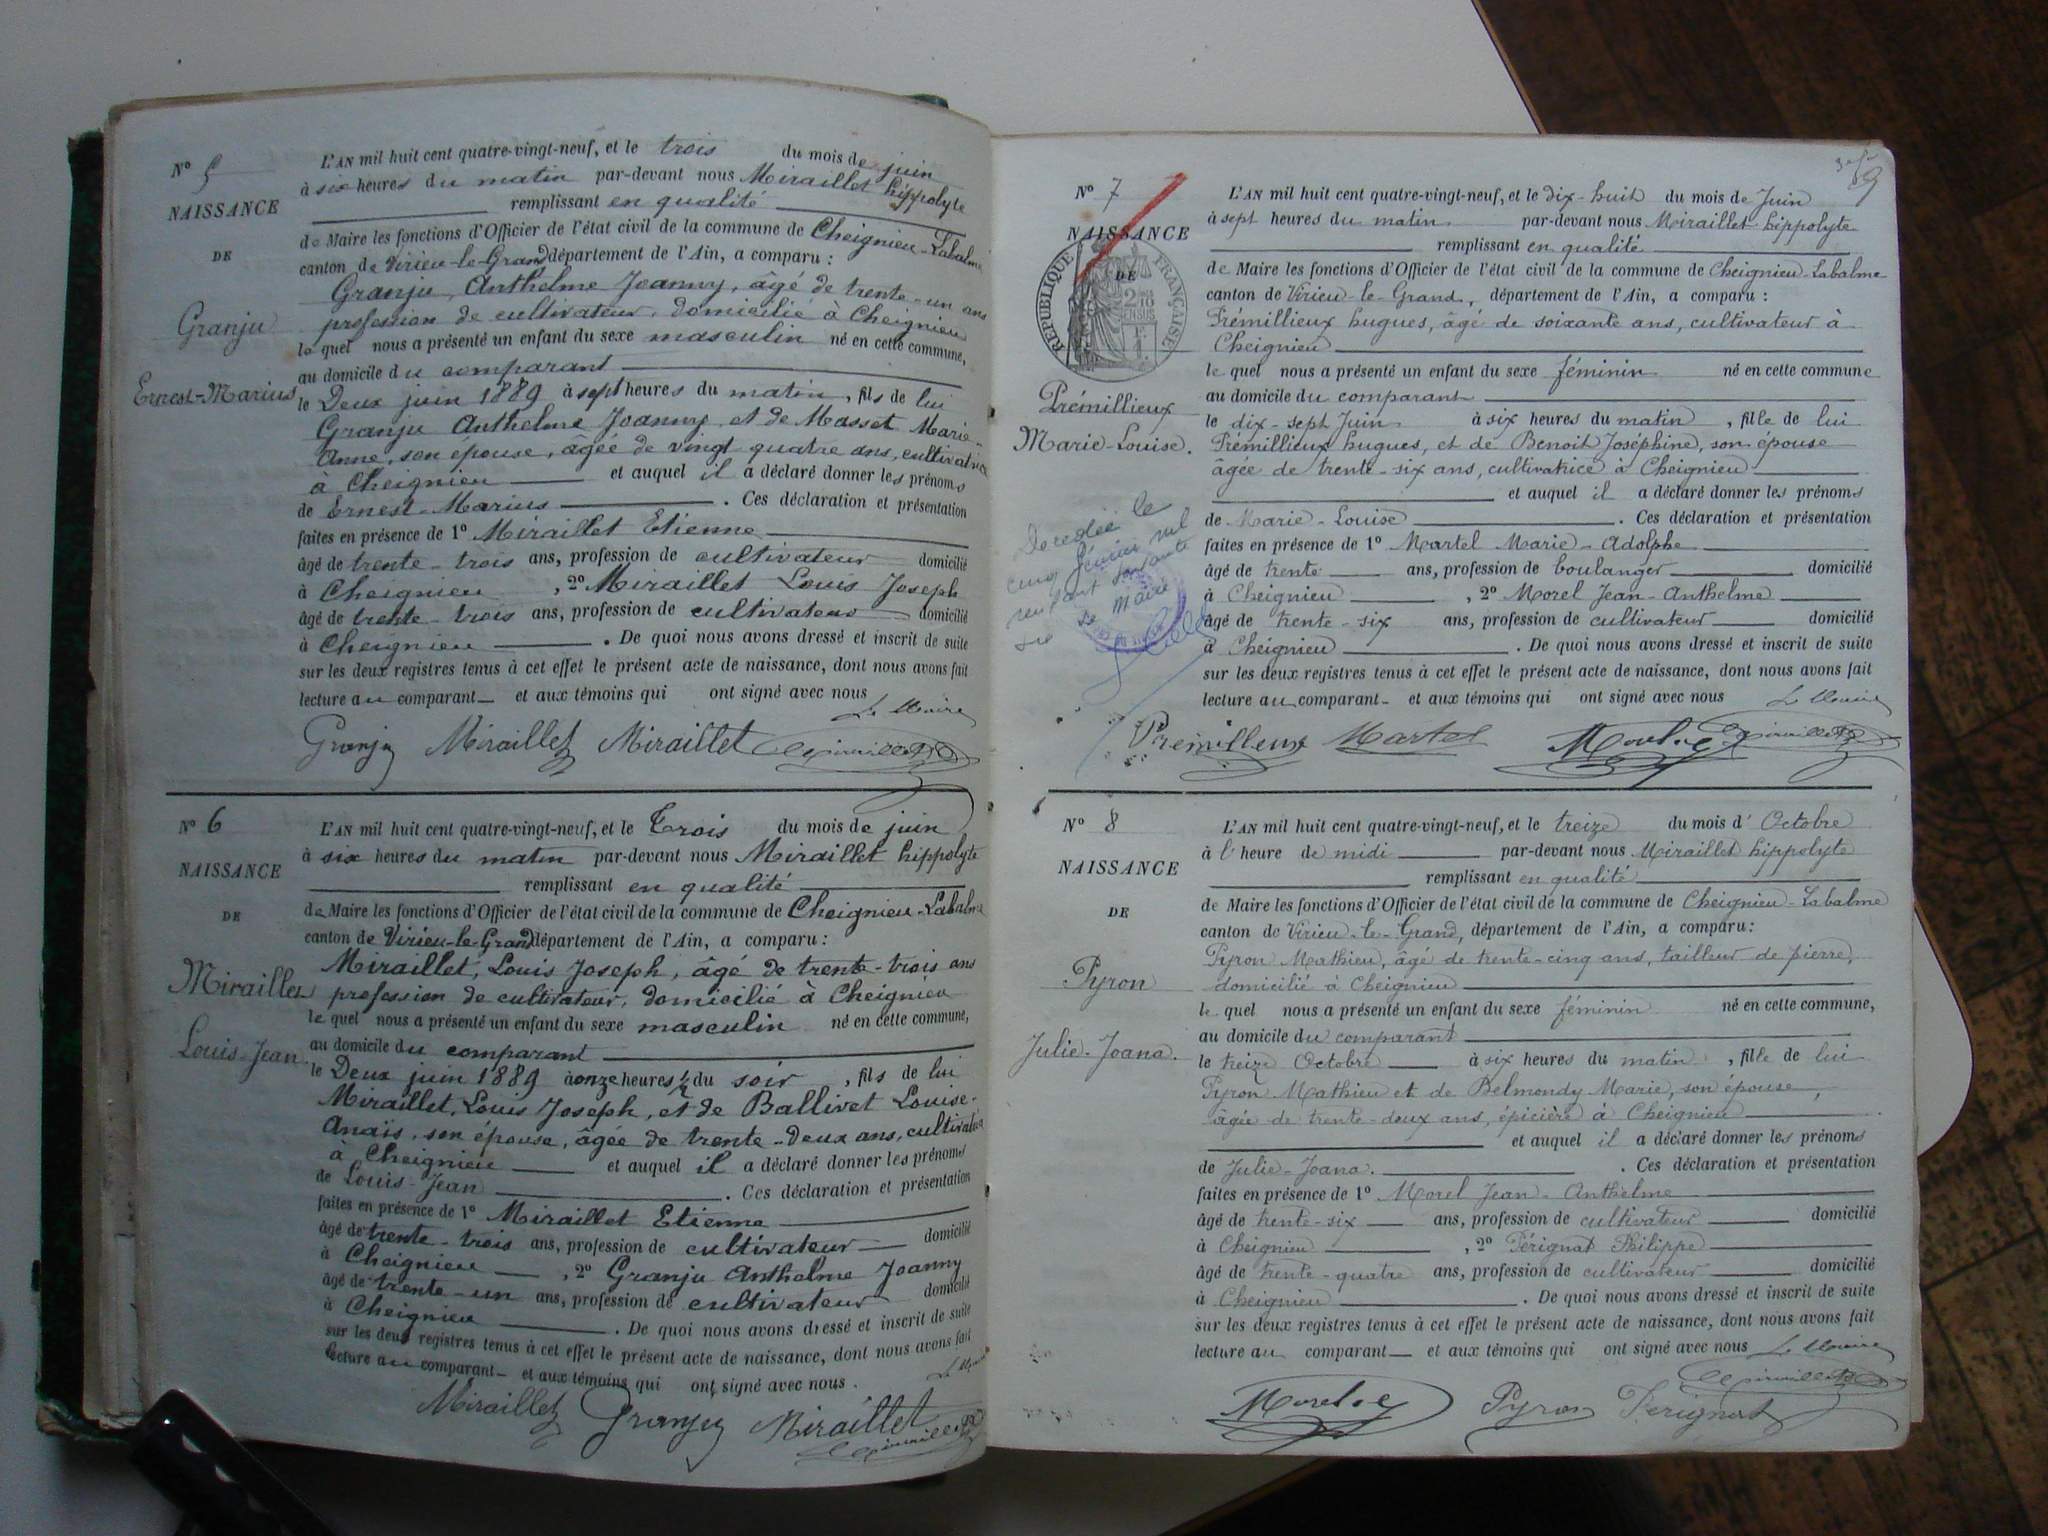 N° 5
NAISSANCE
DE
Granju
Ernest-Marius
L'AN mil huit cent quatre-vingt-neuf, et le trois du mois de juin
à six heures du matin par-devant nous Miraillet hippolyte
remplissant en qualité
de Maire les fonctions d'Officier de l'état civil de la commune de Cheignieu-Labalme
canton de Virieu-le-Grand département de l'Ain, a comparu :
Granju, Anthelme Joanny, âgé de trente-un ans
profession de cultivateur, domicilié à Cheignieu
le quel nous a présenté un enfant du sexe masculin né en cette commune,
au domicile du comparant
le Deux juin 1889 à sept heures du matin, fils de lui
Granju Anthelme Joanny, et de Masset Marie-
Anne, son épouse, âgée de vingt quatre ans, cultivatrice
à Cheignieu et auquel il a déclaré donner les prénoms
de Ernest-Marius . Ces déclaration et présentation
faites en présence de 1° Miraillet Etienne
âgé de trente-trois ans, profession de cultivateur domicilié
à Cheignieu , 2° Miraillet Louis Joseph
âgé de trente-trois ans, profession de cultivateur domicilié
à Cheignieu . De quoi nous avons dressé et inscrit de suite
sur les deux registres tenus à cet effet le présent acte de naissance, dont nous avons fait
lecture au comparant et aux témoins qui ont signé avec nous
Le Maire
Granju Miraillet Miraillet
N° 6
NAISSANCE
DE
Miraillet
Louis-Jean
L'AN mil huit cent quatre-vingt-neuf, et le Trois du mois de juin
à six heures du matin par-devant nous Miraillet hippolyte
remplissant en qualité
de Maire les fonctions d'Officier de l'état civil de la commune de Cheignieu-Labalme
canton de Virieu-le-Grand département de l'Ain, a comparu :
Miraillet, Louis Joseph, âgé de trente-trois ans
profession de cultivateur, domicilié à Cheignieu
le quel nous a présenté un enfant du sexe masculin né en cette commune,
au domicile du comparant
le Deux juin 1889 à onze heures ½ du soir, fils de lui
Miraillet, Louis Joseph, et de Ballivet Louise-
Anaïs, son épouse, âgée de trente-Deux ans, cultivatrice
à Cheignieu et auquel il a déclaré donner les prénoms
de Louis-Jean . Ces déclaration et présentation
faites en présence de 1° Miraillet Etienne
âgé de trente-trois ans, profession de cultivateur domicilié
à Cheignieu , 2° Granju Anthelme Joanny
âgé de trente-un ans, profession de cultivateur domicilié
à Cheignieu . De quoi nous avons dressé et inscrit de suite
sur les deux registres tenus à cet effet le présent acte de naissance, dont nous avons fait
lecture au comparant et aux témoins qui ont signé avec nous.
Le Maire
Miraillet Granju Miraillet
N° 7
NAISSANCE
DE
RÉPUBLIQUE FRANÇAISE
Prémillieux
Marie-Louise.
Decedée le
cinq février mil
neuf cent soixante
six
Le Maire
L'AN mil huit cent quatre-vingt-neuf, et le dix-huit du mois de Juin
à sept heures du matin par-devant nous Miraillet hippolyte
remplissant en qualité
de Maire les fonctions d'Officier de l'état civil de la commune de Cheignieu-Labalme
canton de Virieu-le-Grand, département de l'Ain, a comparu :
Prémillieux hugues, âgé de soixante ans, cultivateur à
Cheignieu
le quel nous a présenté un enfant du sexe féminin né en cette commune
au domicile du comparant
le dix-sept Juin à six heures du matin, fille de lui
Prémillieux hugues, et de Benoit Joséphine, son épouse
âgée de trente-six ans, cultivatrice à Cheignieu
et auquel il a déclaré donner les prénoms
de Marie-Louise . Ces déclaration et présentation
faites en présence de 1° Martel Marie-Adolphe
âgé de trente ans, profession de boulanger domicilié
à Cheignieu , 2° Morel Jean-Anthelme
âgé de trente-six ans, profession de cultivateur domicilié
à Cheignieu . De quoi nous avons dressé et inscrit de suite
sur les deux registres tenus à cet effet le présent acte de naissance, dont nous avons fait
lecture au comparant et aux témoins qui ont signé avec nous
Le Maire
Prémillieux Martel Morel
N° 8
NAISSANCE
DE
Pyron
Julie-Joana.
L'AN mil huit cent quatre-vingt-neuf, et le treize du mois d'Octobre
à l'heure de midi par-devant nous Miraillet hippolyte
remplissant en qualité
de Maire les fonctions d'Officier de l'état civil de la commune de Cheignieu-Labalme
canton de Virieu-le-Grand, département de l'Ain, a comparu :
Pyron Mathieu, âgé de trente-cinq ans, tailleur de pierre,
domicilié à Cheignieu
le quel nous a présenté un enfant du sexe féminin né en cette commune,
au domicile du comparant
le treize Octobre à six heures du matin, fille de lui
Pyron Mathieu et de Belmondy Marie, son épouse,
âgée de trente-deux ans, épicière à Cheignieu
et auquel il a déclaré donner les prénoms
de Julie-Joana. . Ces déclaration et présentation
faites en présence de 1° Morel Jean-Anthelme
âgé de trente-six ans, profession de cultivateur domicilié
à Cheignieu , 2° Pérignat Philippe
âgé de trente-quatre ans, profession de cultivateur domicilié
à Cheignieu . De quoi nous avons dressé et inscrit de suite
sur les deux registres tenus à cet effet le présent acte de naissance, dont nous avons fait
lecture au comparant et aux témoins qui ont signé avec nous Le Maire
Morel Pyron Pérignat